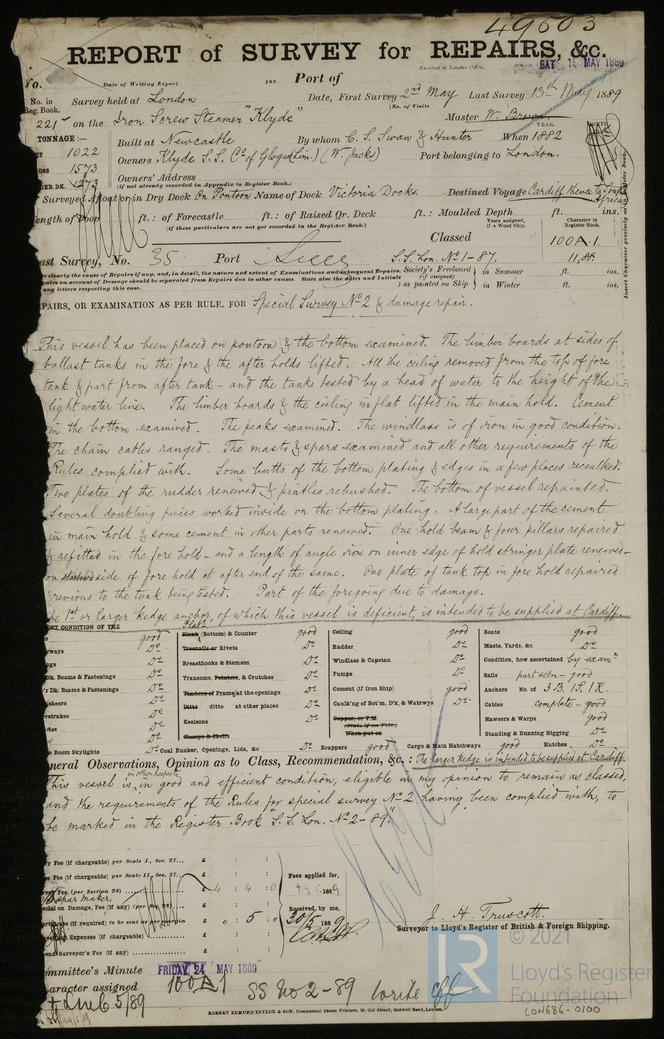 49603
REPORT of SURVEY for REPAIRS, &c.
Date of Writing Report
Port of
Received in London Office
SAT. 18 MAY 1889
No.
No. in Reg. Book.
Survey held at London
Date, First Survey 2nd May Last Survey 13th May 1889
(No. of Visits
221 on the Iron Screw Steamer "Klyde"
Master W. Brown
TONNAGE:—
Built at Newcastle
By whom C. S. Swan & Hunter When 1882
YEAR. MONTH.
1022
Owners Klyde S.S. Co of Glasgow (Lim.) (W. Jacks)
Port belonging to London.
1573
Owners' Address
(if not already recorded in Appendix to Register Book.)
UNDER DK. 1273
Surveyed Afloat or in Dry Dock On Pontoon Name of Dock Victoria Docks.
Destined Voyage Cardiff thence to South Africa
Length of Poop ft.: of Forecastle ft.: of Raised Qr. Deck ft.: Moulded Depth ft. ins.
(if these particulars are not yet recorded in the Register Book.)
Years assigned, if a Wood Ship.
Character in Register Book.
Insert Character precisely as in Register Book.
Classed
100A.1.
Last Survey, No. 35 Port
S.S. Lon. No 1-87.
11,88.
Society's Freeboard (if assigned) as painted on Ship
in Summer ft. ins.
in Winter ft. ins.
State clearly the cause of Repairs if any, and, in detail, the nature and extent of Examinations and subsequent Repairs.
Repairs on account of Damage should be separated from Repairs due to other causes. State also the dates and initials
any letters respecting this case.
REPAIRS, OR EXAMINATION AS PER RULE, FOR Special Survey No 2 & damage repair.
This vessel has been placed on pontoon & the bottom examined. The limber boards at sides of
ballast tanks in the fore & the after holds lifted. All the ceiling removed from the top of fore
tank & part from after tank – and the tanks tested by a head of water to the height of the
light water line. The limber boards & the ceiling in flat lifted in the main hold. Cement
in the bottom examined. The peaks examined. The windlass is of iron in good condition.
The chain cables ranged. The masts & spars examined and all other requirements of the
Rules complied with. Some butts of the bottom plating & edges in a few places recaulked.
Two plates of the rudder renewed & pintles rebushed. The bottom of vessel repainted.
Several doubling pieces worked inside on the bottom plating. A large part of the cement
in main hold & some cement in other parts renewed. One hold beam & four pillars repaired
& refitted in the fore hold – and a length of angle iron on inner edge of hold stringer plate renewed –
on starboard side of fore hold at after end of the same. One plate of tank top in fore hold repaired
previous to the tank being tested. Part of the foregoing due to damage.
The 1st or larger kedge anchor, of which this vessel is deficient, is intended to be supplied at Cardiff.
PRESENT CONDITION OF THE
good
Do
Dk. Beams & Fastenings Do
r Dk. Beams & Fastenings Do
Do
Do
Do
Do
e Room Skylights Do
Plat
Plank (Bottom) & Counter good
Treenails or Rivets Do
Breasthooks & Stemson Do
Transoms, Pointers, & Crutches Do
Timbers of Frame at the openings Do
Ditto ditto at other places Do
Keelsons Do
Clamps & Shelfs
Coal Bunker, Openings, Lids, &c Do
Ceiling good
Rudder Do
Windlass & Capstan Do
Pumps Do
Cement (if Iron Ship) good
Caulk'ng of Bot'm, D'k, & Watrwys Do
Copper, or Y.M.
(State if on Felt)
When put on
Scuppers good
Cargo & Main Hatchways good
Boats good
Masts, Yards, &c. Do
Condition, how ascertained by exam
Sails part seen – good
Anchors No. of 3 B. 1 S. 1 K.
Cables complete – good
Hawsers & Warps good
Standing & Running Rigging Do
Hatches Do
General Observations, Opinion as to Class, Recommendation, &c.: The larger kedge is intended to be supplied at Cardiff
in other respects
This vessel is in good and efficient condition, eligible in my opinion to remain as classed,
and the requirements of the Rules for special survey No 2 having been complied with, to
be marked in the Register Book "S.S. Lon. No 2-89."
y Fee (if chargeable) per Scale I., Sec. 27... £ : :
Fee (if chargeable) per Scale II., Sec. 27... £ : :
Fee (per Section 28) £ 4 : 4 : 0
Special on Damage, Fee (if any) (per Sec. 28) £ : :
Certificate (if required) to be sent as per margin £ 0 : 5 : 0
Expenses (if chargeable) £ : :
Second Surveyor's Fee (if any) £ : :
Fees applied for,
1889
Received by me,
30/5 1889
J. H. Truscott.
Surveyor to Lloyd's Register of British & Foreign Shipping.
Committee's Minute FRIDAY 24 MAY 1889
Character assigned 100A1
SS No 2-89 write off
+ LMC 5/89
ROBERT EDMUND TAYLOR & SON, Commercial Steam Printers, 19, Old Street, Goswell Road, London.
LR
© 2021
Lloyd's Register
Foundation
LON686-0100